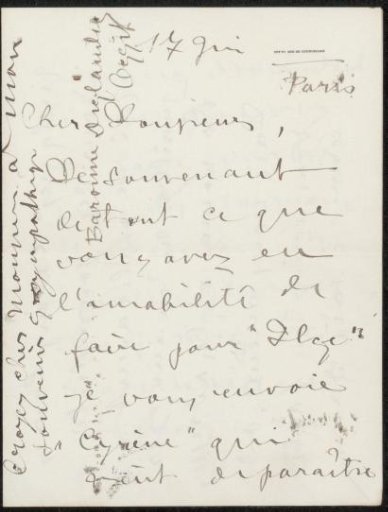 17 Juin
Paris
Cher Monsieur,
Me souvenant
de tout ce que
vous avez eu
l'amabilité de
faire pour "Ilse"
je vous envoie
"Cyrène" qui
vient de paraître
Croyez cher Monsieur à mon
souvenir sympathique
Baronne